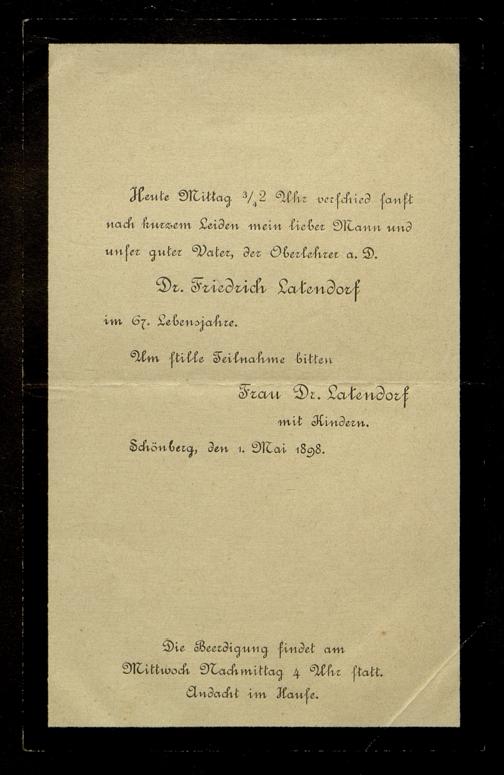 Heute Mittag 3/4 2 Uhr verschied sanft
nach kurzem Leiden mein lieber Mann und
unser guter Vater, der Oberlehrer a. D.
Dr. Friedrich Latendorf
im 67. Lebensjahre.
Um stille Teilnahme bitten
Frau Dr. Latendorf
mit Kindern.
Schönberg, den 1. Mai 1898.
Die Beerdigung findet am
Mittwoch Nachmittag 4 Uhr statt.
Andacht im Hause.